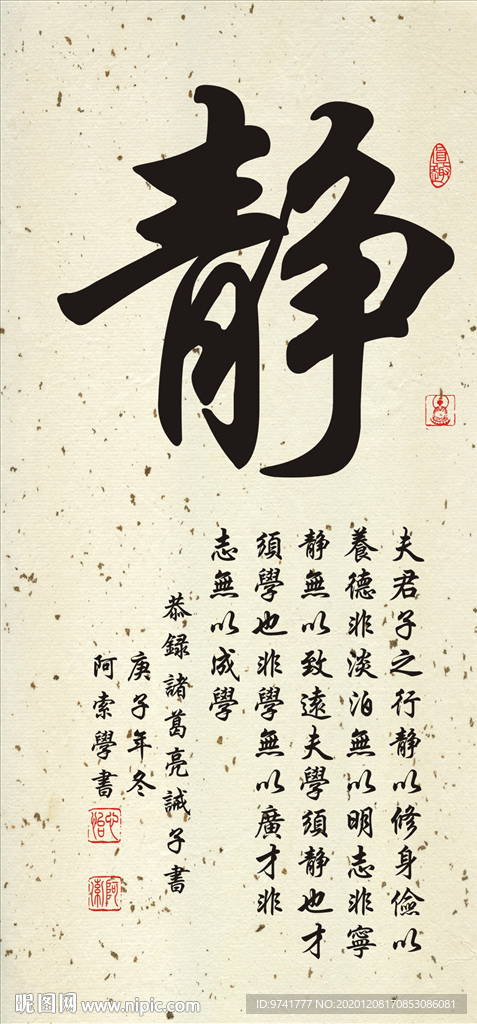 静
夫君子之行静以修身儉以
養德非淡泊無以明志非寧
静無以致遠夫學須静也才
須學也非學無以廣才非
志無以成學
恭録諸葛亮誡子書
庚子年冬
阿索學書
昵图网 www.nipic.com
ID:9741777 NO:20201208170853086081